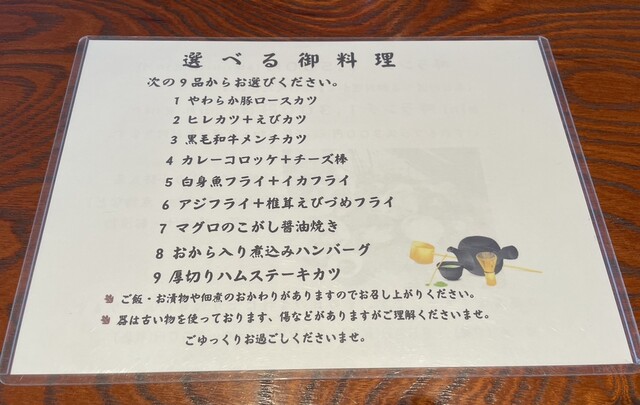 選べる御料理
次の9品からお選びください。
1 やわらか豚ロースカツ
2 ヒレカツ＋えびカツ
3 黒毛和牛メンチカツ
4 カレーコロッケ＋チーズ棒
5 白身魚フライ＋イカフライ
6 アジフライ＋椎茸えびづめフライ
7 マグロのこがし醤油焼き
8 おから入り煮込みハンバーグ
9 厚切りハムステーキカツ
ご飯・お漬物や佃煮のおかわりがありますのでお召し上がりください。
器は古い物を使っております、傷などがありますがご理解くださいませ。
ごゆっくりお過ごしくださいませ。